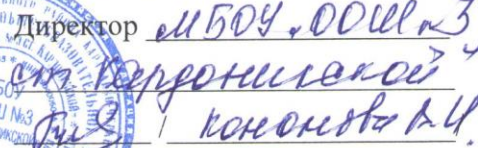 Директор МБОУ „ООШ №3
ст. Кардоникской"
/ Кононова А.И.